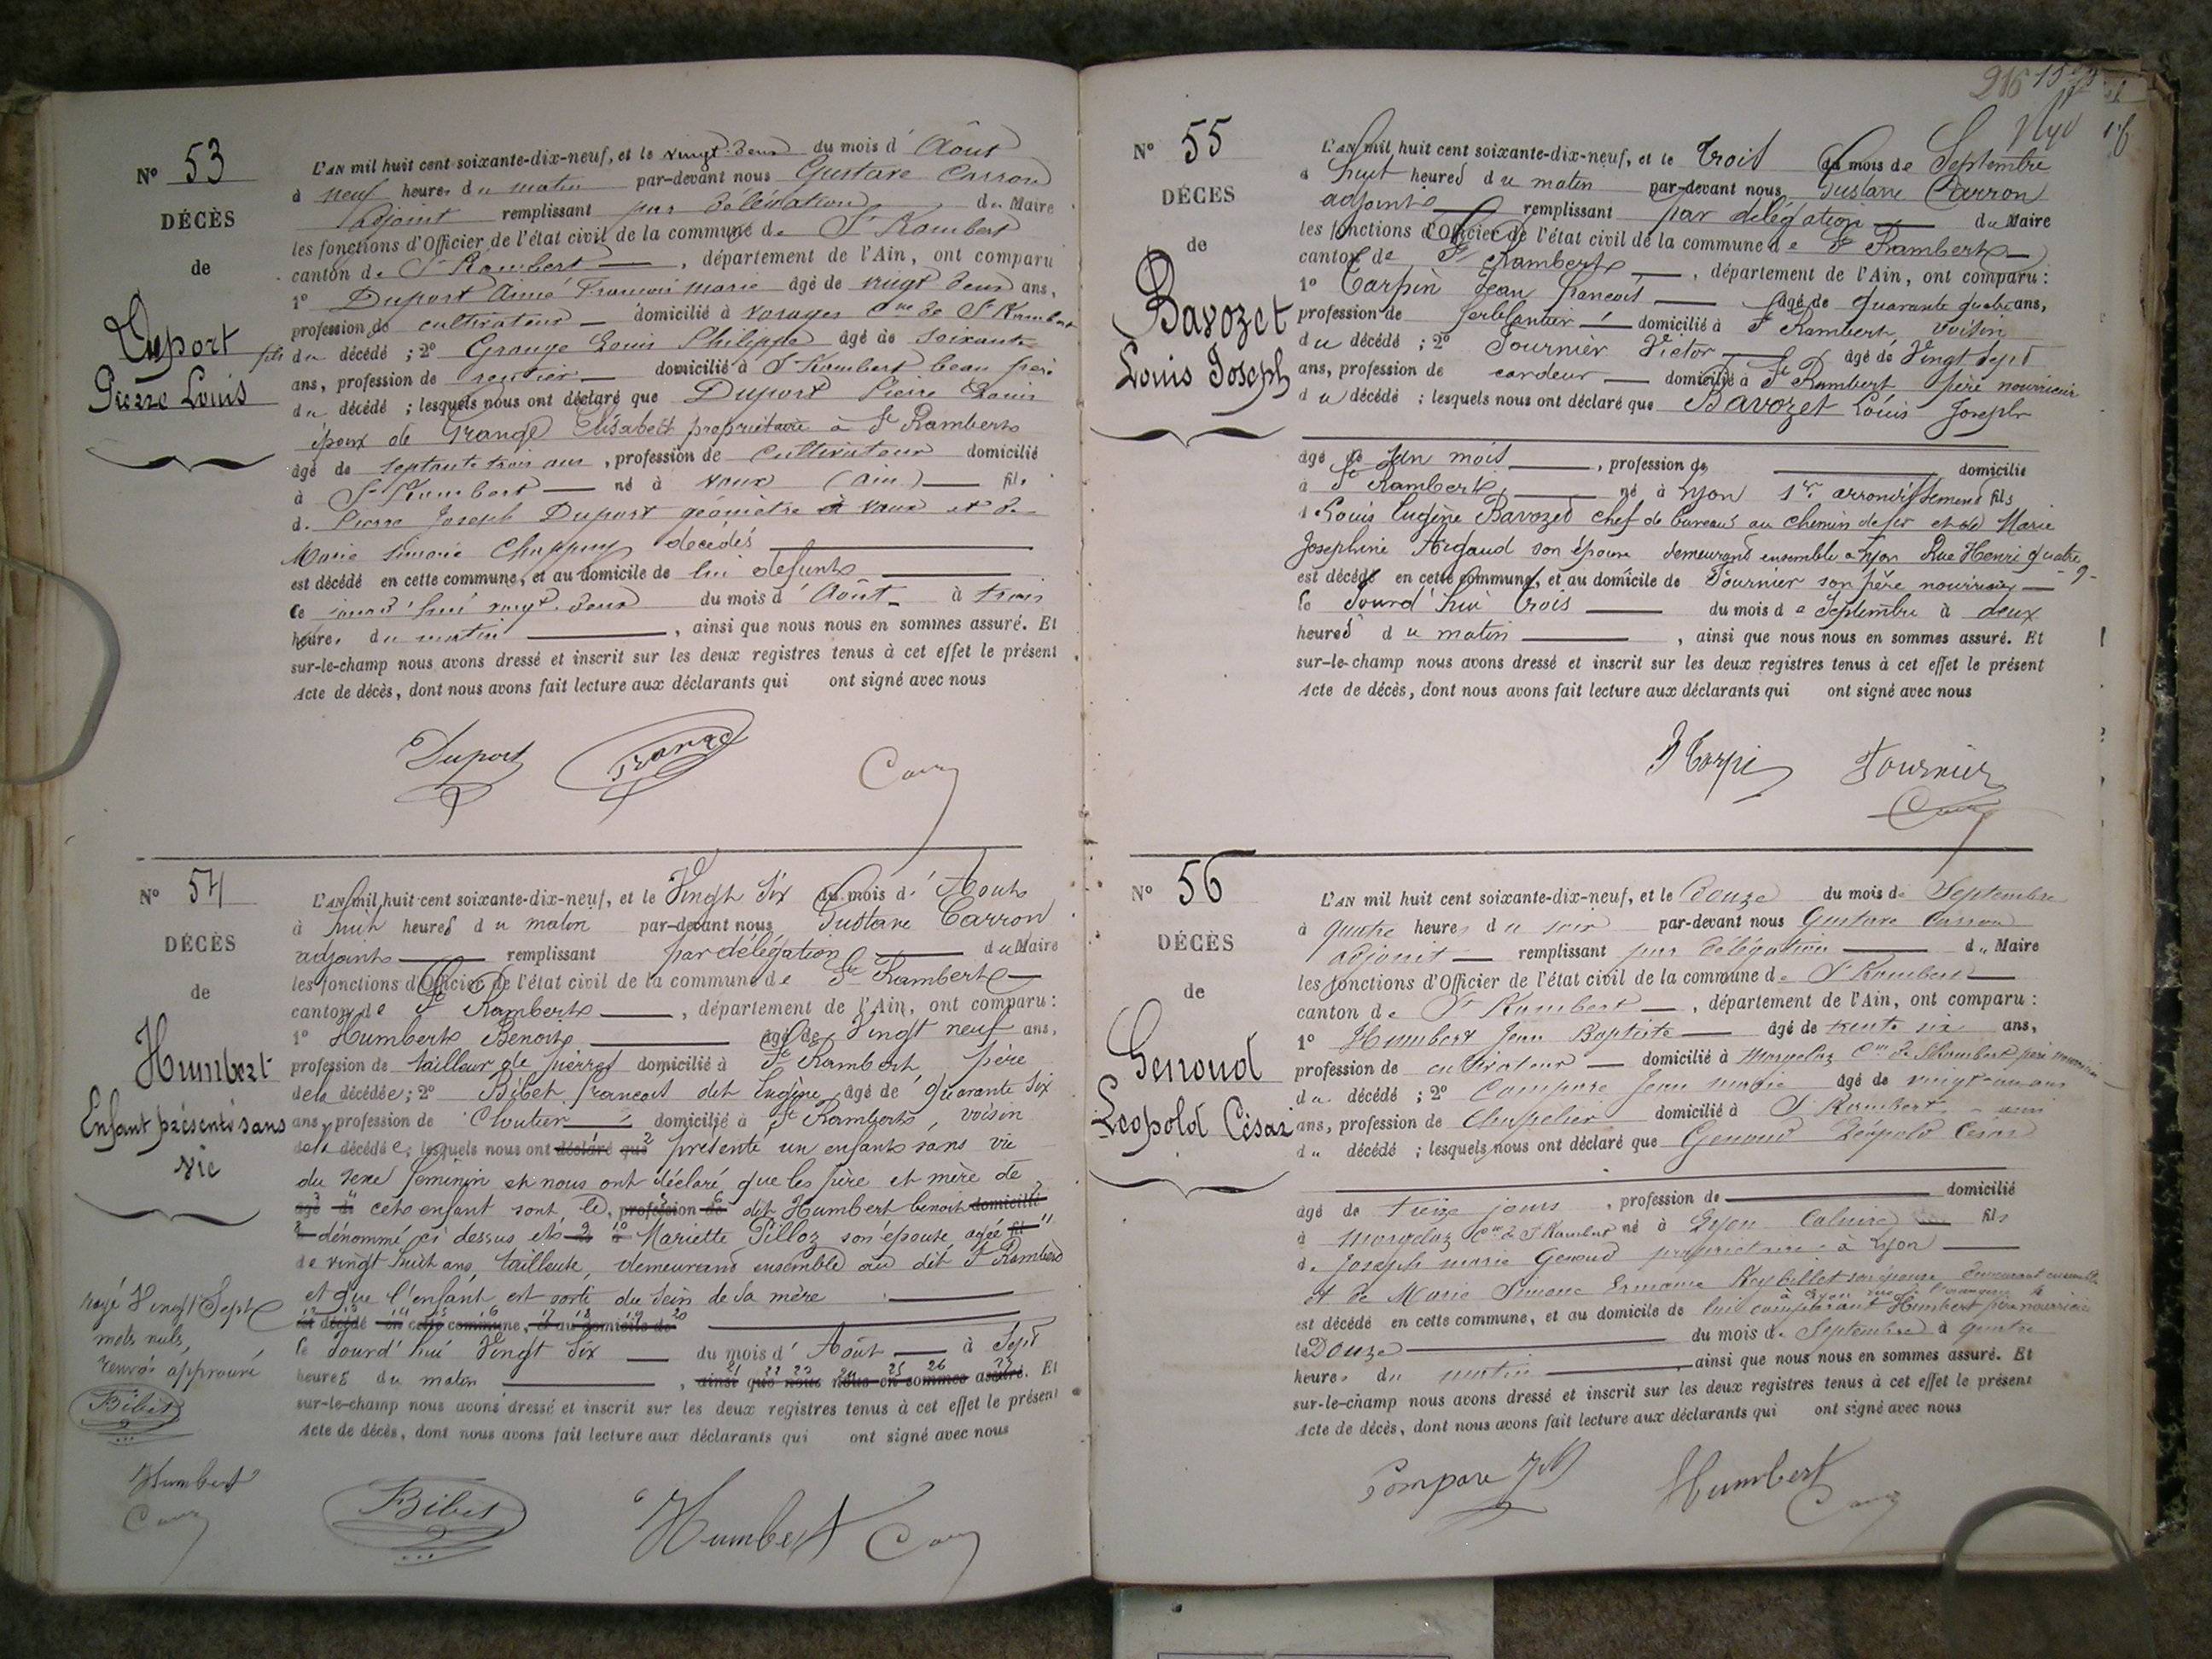 N° 53
DÉCÈS
de
Duport
Pierre Louis
L'AN mil huit cent soixante-dix-neuf, et le vingt-deux du mois d'Août
à neuf heures du matin par-devant nous Gustave Carron
Adjoint remplissant par délégation du Maire
les fonctions d'Officier de l'état civil de la commune de St Rambert
canton de St Rambert, département de l'Ain, ont comparu
1° Duport Aimé François Marie âgé de vingt deux ans,
profession de cultivateur domicilié à Vorages Cne de St Rambert
fils du décédé ; 2° Grange Louis Philippe âgé de soixante
ans, profession de rentier domicilié à St Rambert beau frère
du décédé ; lesquels nous ont déclaré que Duport Pierre Louis
époux de Grange Elisabeth propriétaire à St Rambert
âgé de septante trois ans, profession de Cultivateur domicilié
à St Rambert né à Vaux (Ain) fils
de Pierre Joseph Duport géomètre à Vaux et de
Marie Chappuy décédés
est décédé en cette commune, et au domicile de lui défunt
ce jourd'hui vingt-deux du mois d'Août à trois
heures du matin, ainsi que nous nous en sommes assuré. Et
sur-le-champ nous avons dressé et inscrit sur les deux registres tenus à cet effet le présent
Acte de décès, dont nous avons fait lecture aux déclarants qui ont signé avec nous
Duport Grange
N° 54
DÉCÈS
de
Humbert
Enfant présenté sans
vie
L'AN mil huit cent soixante-dix-neuf, et le Vingt Six du mois d'Aout
à huit heures du matin par-devant nous Gustave Carron
adjoint remplissant par délégation du Maire
les fonctions d'Officier de l'état civil de la commune de St Rambert
canton de St Rambert, département de l'Ain, ont comparu :
1° Humbert Benoit âgé de Vingt neuf ans,
profession de tailleur de pierres domicilié à St Rambert, père
de la décédée ; 2° Bibet françois dit Eugène âgé de quarante six
ans, profession de Cloutier domicilié à St Rambert, voisin
de la décédée ; lesquels nous ont déclaré que présenté un enfant sans vie
du sexe féminin et nous ont déclaré que les père et mère de
cet enfant sont le profession de dit Humbert benoit domicilié
dénommé ci dessus et Mariette Pilloz son épouse agée
de vingt huit ans, tailleuse, demeurant ensemble au dit St Rambert
et que l'enfant est sorti du sein de sa mère
est décédé en cette commune, et au domicile de
le Jourd'hui Vingt Six du mois d'Août à Sept
heures du matin, ainsi que nous nous en sommes assuré. Et
sur-le-champ nous avons dressé et inscrit sur les deux registres tenus à cet effet le présent
Acte de décès, dont nous avons fait lecture aux déclarants qui ont signé avec nous
rayé Vingt Sept
mots nuls,
renvoi approuvé
Bibet
Humbert
Bibet Humbert
N° 55
DÉCÈS
de
Bavozet
Louis Joseph
L'AN mil huit cent soixante-dix-neuf, et le trois du mois de Septembre
à huit heures du matin par-devant nous Gustave Carron
adjoint remplissant par délégation du Maire
les fonctions d'Officier de l'état civil de la commune de St Rambert
canton de St Rambert, département de l'Ain, ont comparu :
1° Carpin Jean françois âgé de quarante quatre ans,
profession de ferblantier domicilié à St Rambert, voisin
du décédé ; 2° Fournier Victor âgé de Vingt sept
ans, profession de cardeur domicilié à St Rambert père nourricier
du décédé ; lesquels nous ont déclaré que Bavozet Louis Joseph
âgé de Un mois, profession de domicilié
à St Rambert, né à Lyon 1er arrondissement fils
de Louis Eugène Bavozet chef de bureau au chemin de fer et de Marie
Josephine Argaud son épouse demeurant ensemble à Lyon Rue Henri quatre 9
est décédé en cette commune, et au domicile de Fournier son père nourricier
le Jourd'hui trois du mois de Septembre à deux
heures du matin, ainsi que nous nous en sommes assuré. Et
sur-le-champ nous avons dressé et inscrit sur les deux registres tenus à cet effet le présent
Acte de décès, dont nous avons fait lecture aux déclarants qui ont signé avec nous
Fournier
N° 56
DÉCÈS
de
Genoud
Leopold César
L'AN mil huit cent soixante-dix-neuf, et le Douze du mois de Septembre
à quatre heures du soir par-devant nous Gustave Carron
Adjoint remplissant par délégation du Maire
les fonctions d'Officier de l'état civil de la commune de St Rambert
canton de St Rambert, département de l'Ain, ont comparu :
1° Humbert Jean Baptiste âgé de trente six ans,
profession de cultivateur domicilié à Morgelaz Cne de St Rambert père nourricier
du décédé ; 2° Compare Jean Marie âgé de vingt-un ans
ans, profession de Chapelier domicilié à St Rambert ami
du décédé ; lesquels nous ont déclaré que Genoud Léopold César
âgé de treize jours, profession de domicilié
à Morgelaz Cne de St Rambert né à Lyon Caluire fils
de Joseph Marie Genoud propriétaire à Lyon
et de Marie son épouse demeurant ensemble
est décédé en cette commune, et au domicile de lui comparant Humbert père nourricier
le Douze du mois de Septembre à quatre
heures du matin, ainsi que nous nous en sommes assuré. Et
sur-le-champ nous avons dressé et inscrit sur les deux registres tenus à cet effet le présent
Acte de décès, dont nous avons fait lecture aux déclarants qui ont signé avec nous
Compare JM Humbert